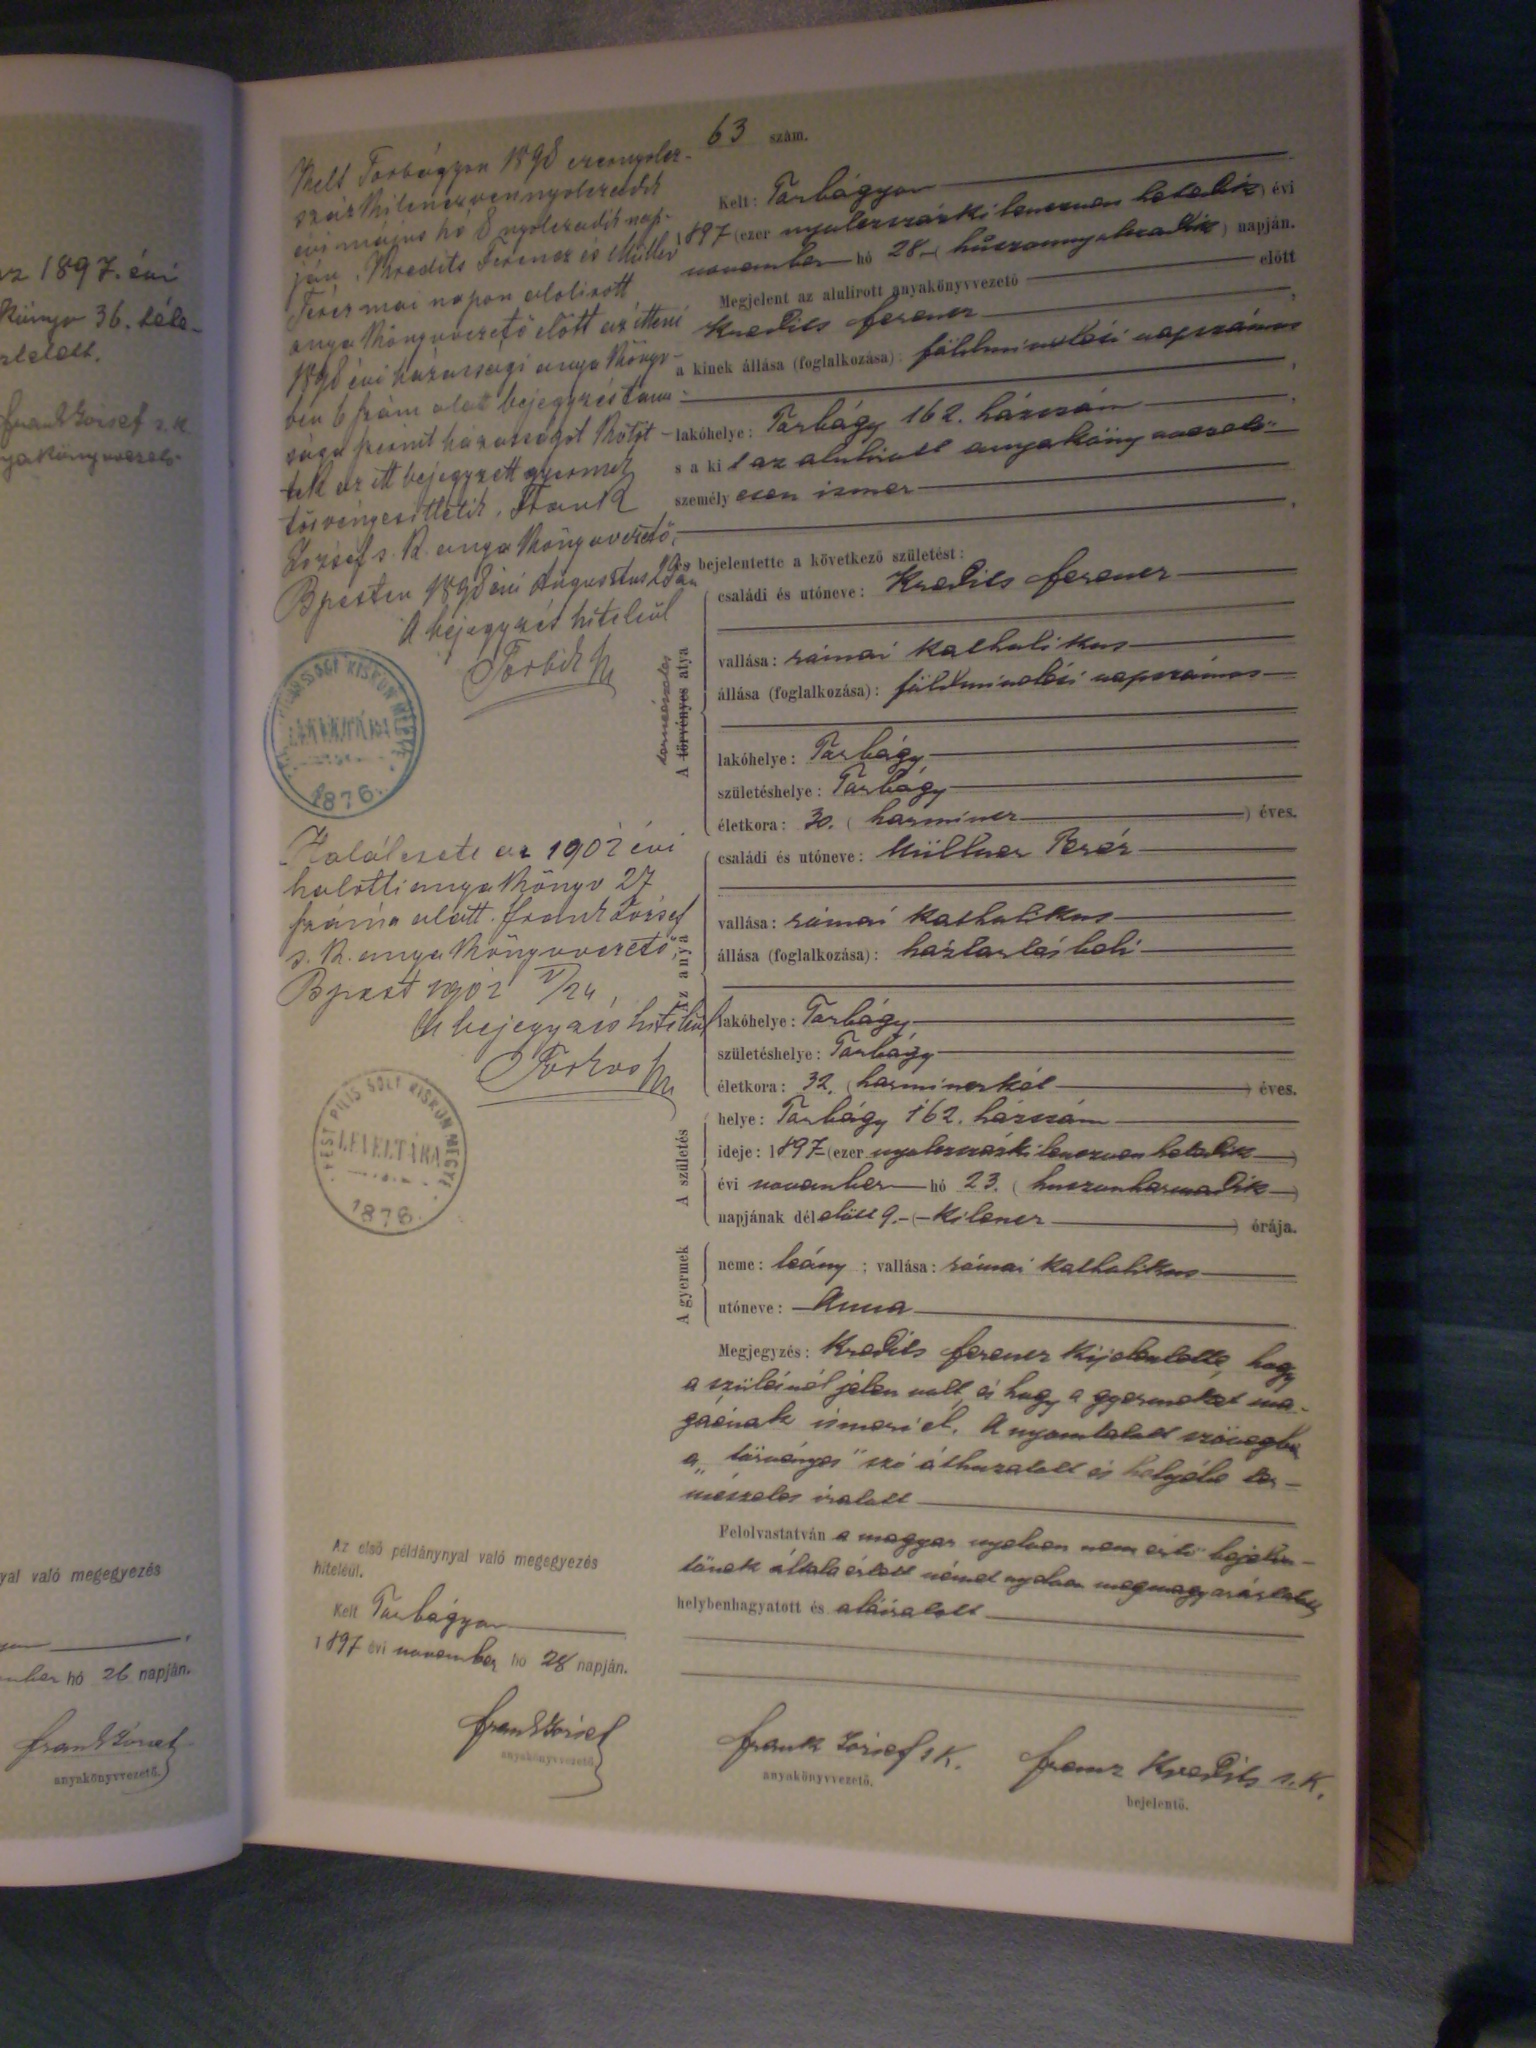 az 1897. évi
könyv 36. téte-
Frank József s. k.
anyakönyvvezető
való megegyezés
hó 26 napján.
Frank József
anyakönyvvezető.
Kelt Torbágyon 1898 ezernyolcz-
százkilenczvennyolczadik
évi május hó 8 nyolczadik nap-
ján. Kredits Ferencz és Müller
Teréz mai napon alólirott
anyakönyvvezető előtt az itteni
1898 évi házassági anyakönyv-
ben 6 szám alatt bejegyzés tanu-
sága szerint házasságot kötöt-
tek az itt bejegyzett gyermek
törvényesittetik. Frank
József s. k. anyakönyvvezető.
Bpesten 1898 évi Augusztus
A bejegyzés hiteléül
LEVÉLTÁRA
1876.
Halálesete az 1902 évi
halotti anyakönyv 27
száma alatt. Frank József
s. k. anyakönyvvezető.
Bpest 1902
A bejegyzés hiteléül
PEST PILIS SOLT KISKUN MEGYE
LEVÉLTÁRA
1876.
Az első példánynyal való megegyezés
hiteléül.
Kelt Torbágyon
1897 évi november hó 28 napján.
Frank József
anyakönyvvezető.
63 szám.
Kelt: Torbágyon
1897 (ezer nyolczszázkilenczven hetedik) évi
november hó 28. (húszonnyolczadik) napján.
Megjelent az alulirott anyakönyvvezető előtt
Kredits Ferencz,
a kinek állása (foglalkozása): földmivelési napszámos
lakóhelye: Torbágy 162. házszám,
s a kit az alulirott anyakönyvvezető
személyesen ismer,
és bejelentette a következő születést:
A törvényes természetes atya
családi és utóneve: Kredits Ferencz
vallása: római katholikus
állása (foglalkozása): földmivelési napszámos
lakóhelye: Torbágy
születéshelye: Torbágy
életkora: 30. (harmincz) éves.
Az anya
családi és utóneve: Müllner Teréz
vallása: római katholikus
állása (foglalkozása): háztartásbeli
lakóhelye: Torbágy
születéshelye: Torbágy
életkora: 32. (harminczkét) éves.
A születés
helye: Torbágy 162. házszám
ideje: 1897 (ezer nyolczszázkilenczven hetedik)
évi november hó 23. (huszonharmadik)
napjának délelőtt 9. (kilencz) órája.
A gyermek
neme: leány; vallása: római katholikus
utóneve: Anna
Megjegyzés: Kredits Ferencz kijelentette, hogy
a szülésnél jelen volt és hogy a gyermeket ma-
gáénak ismeri el. A nyomtatott szövegben
a „törvényes" szó áthuzatott és helyébe ter-
mészetes iratott
Felolvastatván a magyar nyelven nem értő bejelen-
tőnek általa értett német nyelven megmagyaráztatott
helybenhagyatott és aláiratott
Frank József s. k.
anyakönyvvezető.
Franz Kredits s. k.
bejelentő.